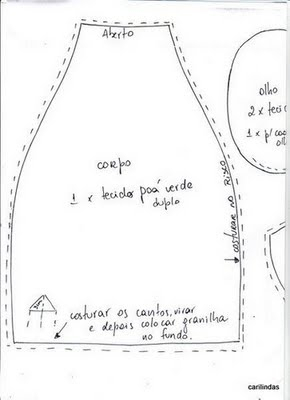 Aberto
olho
2 x teci
1 x p/ ca
olh
corpo
1 x tecido poá verde
duplo
costurar no risco
costurar os cantos, virar
e depois colocar granilha
no fundo.
carilindas